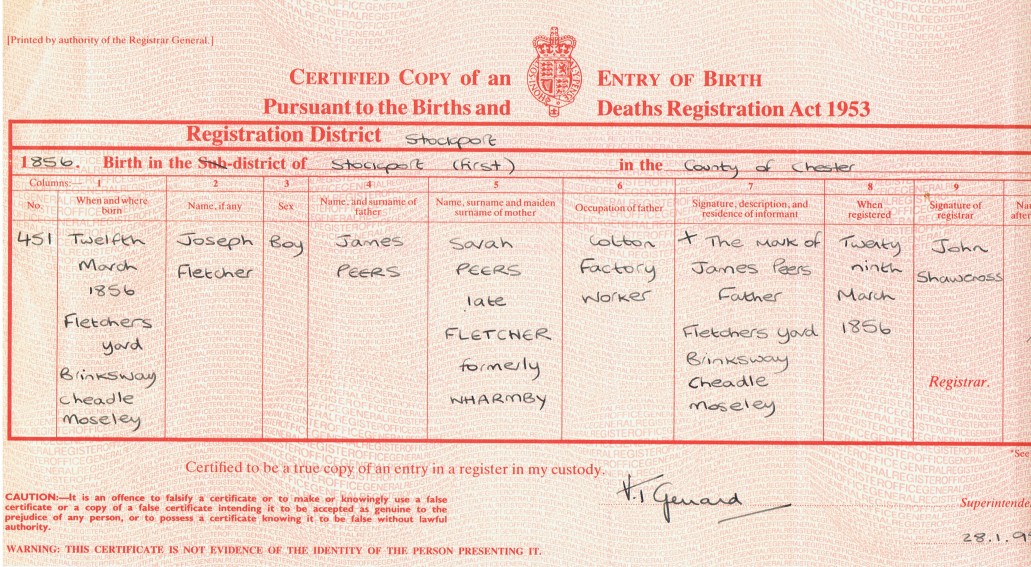 [Printed by authority of the Registrar General.]
CERTIFIED COPY of an ENTRY OF BIRTH
Pursuant to the Births and Deaths Registration Act 1953
Registration District Stockport
1856. Birth in the Sub-district of Stockport (first) in the County of Chester
Columns:— 1 2 3 4 5 6 7 8 9
No. When and where born Name, if any Sex Name, and surname of father Name, surname and maiden surname of mother Occupation of father Signature, description, and residence of informant When registered Signature of registrar
451 Twelfth Joseph Boy James Sarah Cotton + The mark of Twenty John
March Fletcher PEERS PEERS Factory James Peers ninth Shawcross
1856 late Worker Father March
Fletchers FLETCHER Fletchers yard 1856
yard formerly Brinksway
Brinksway WHARMBY Cheadle Registrar.
Cheadle Moseley
Moseley
*See
Certified to be a true copy of an entry in a register in my custody.
CAUTION:—It is an offence to falsify a certificate or to make or knowingly use a false
certificate or a copy of a false certificate intending it to be accepted as genuine to the
prejudice of any person, or to possess a certificate knowing it to be false without lawful
authority.
WARNING: THIS CERTIFICATE IS NOT EVIDENCE OF THE IDENTITY OF THE PERSON PRESENTING IT.
Superintende
28.1.9